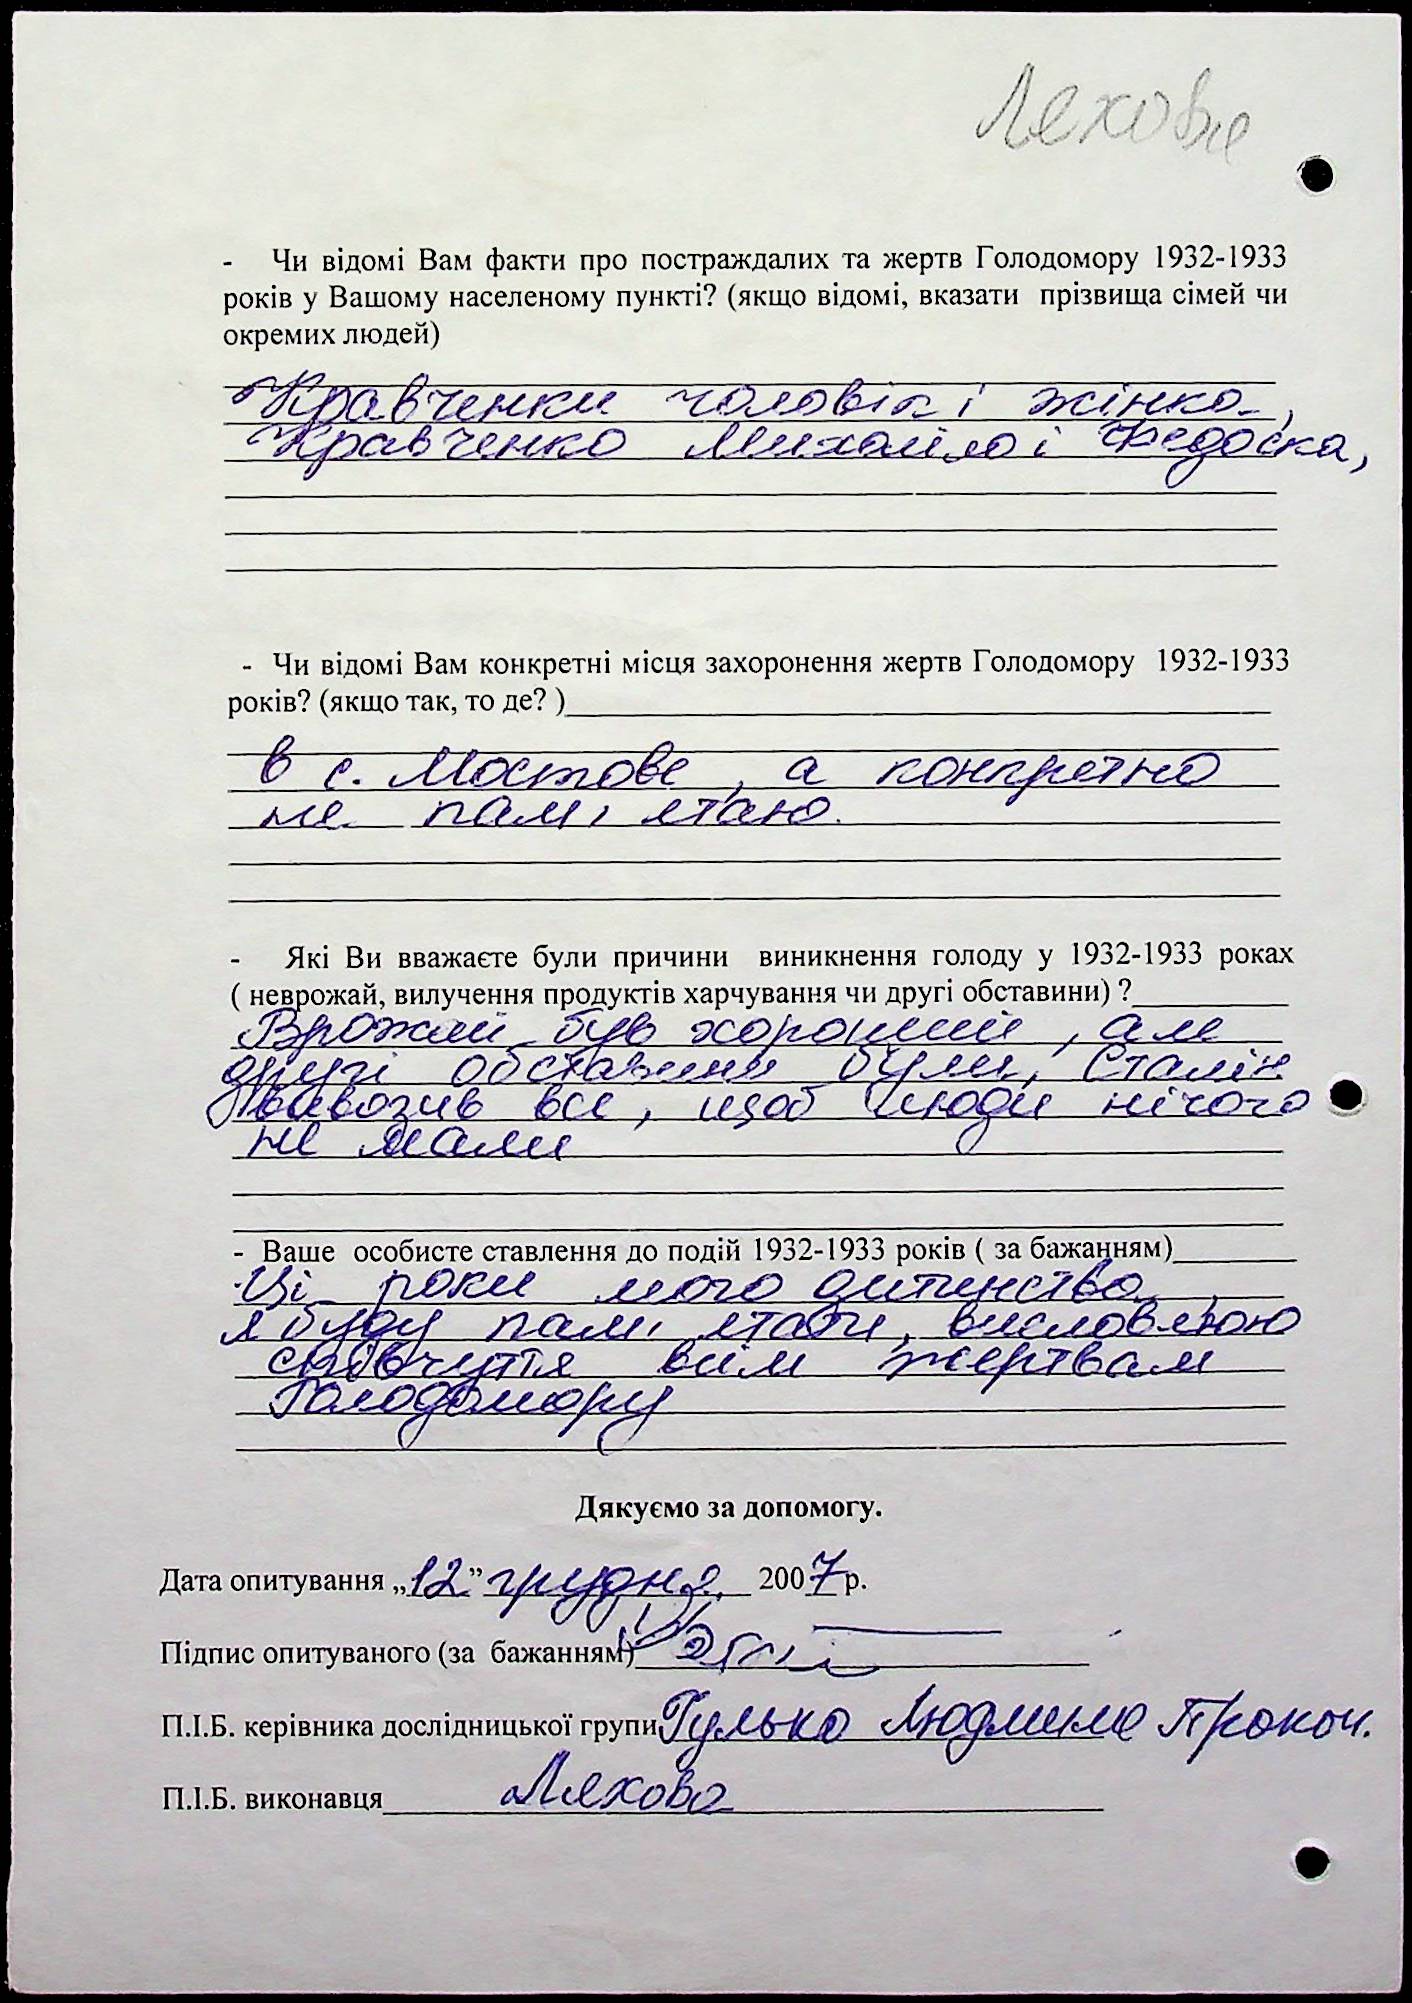 Ляхова
- Чи відомі Вам факти про постраждалих та жертв Голодомору 1932-1933
років у Вашому населеному пункті? (якщо відомі, вказати прізвища сімей чи
окремих людей)
Кравченки чоловік і жінка,
Кравченко Михайло і Федоска,
- Чи відомі Вам конкретні місця захоронення жертв Голодомору 1932-1933
років? (якщо так, то де? )
в с. Мостове, а конкретно
не пам, ятаю.
- Які Ви вважаєте були причини виникнення голоду у 1932-1933 роках
( неврожай, вилучення продуктів харчування чи другі обставини) ?
Врожай був хороший, але
другі обставини були, Сталін
вивозив все, щоб люди нічого
не мали
- Ваше особисте ставлення до подій 1932-1933 років ( за бажанням)
Ці роки мого дитинства,
я буду пам, ятати, висловлюю
співчуття всім жертвам
Голодомору
Дякуємо за допомогу.
Дата опитування „12” грудня 2007р.
Підпис опитуваного (за бажанням)
П.І.Б. керівника дослідницької групи Гулько Людмила Прокоп.
П.І.Б. виконавця Ляхова